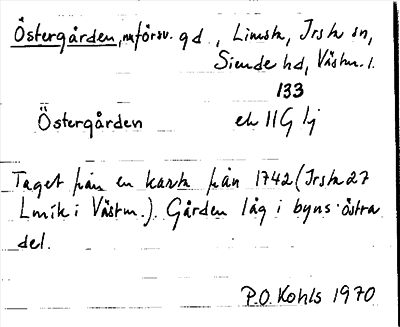 Östergården, nu försv. gd, Limsta, Irsta sn,
Siende hd, Västm. l.
133
Östergården ek 11G 1j
Taget från en karta från 1742 (Irsta 27
Lmk i Västm.). Gården låg i byns östra
del.
P.O. Kohls 1970